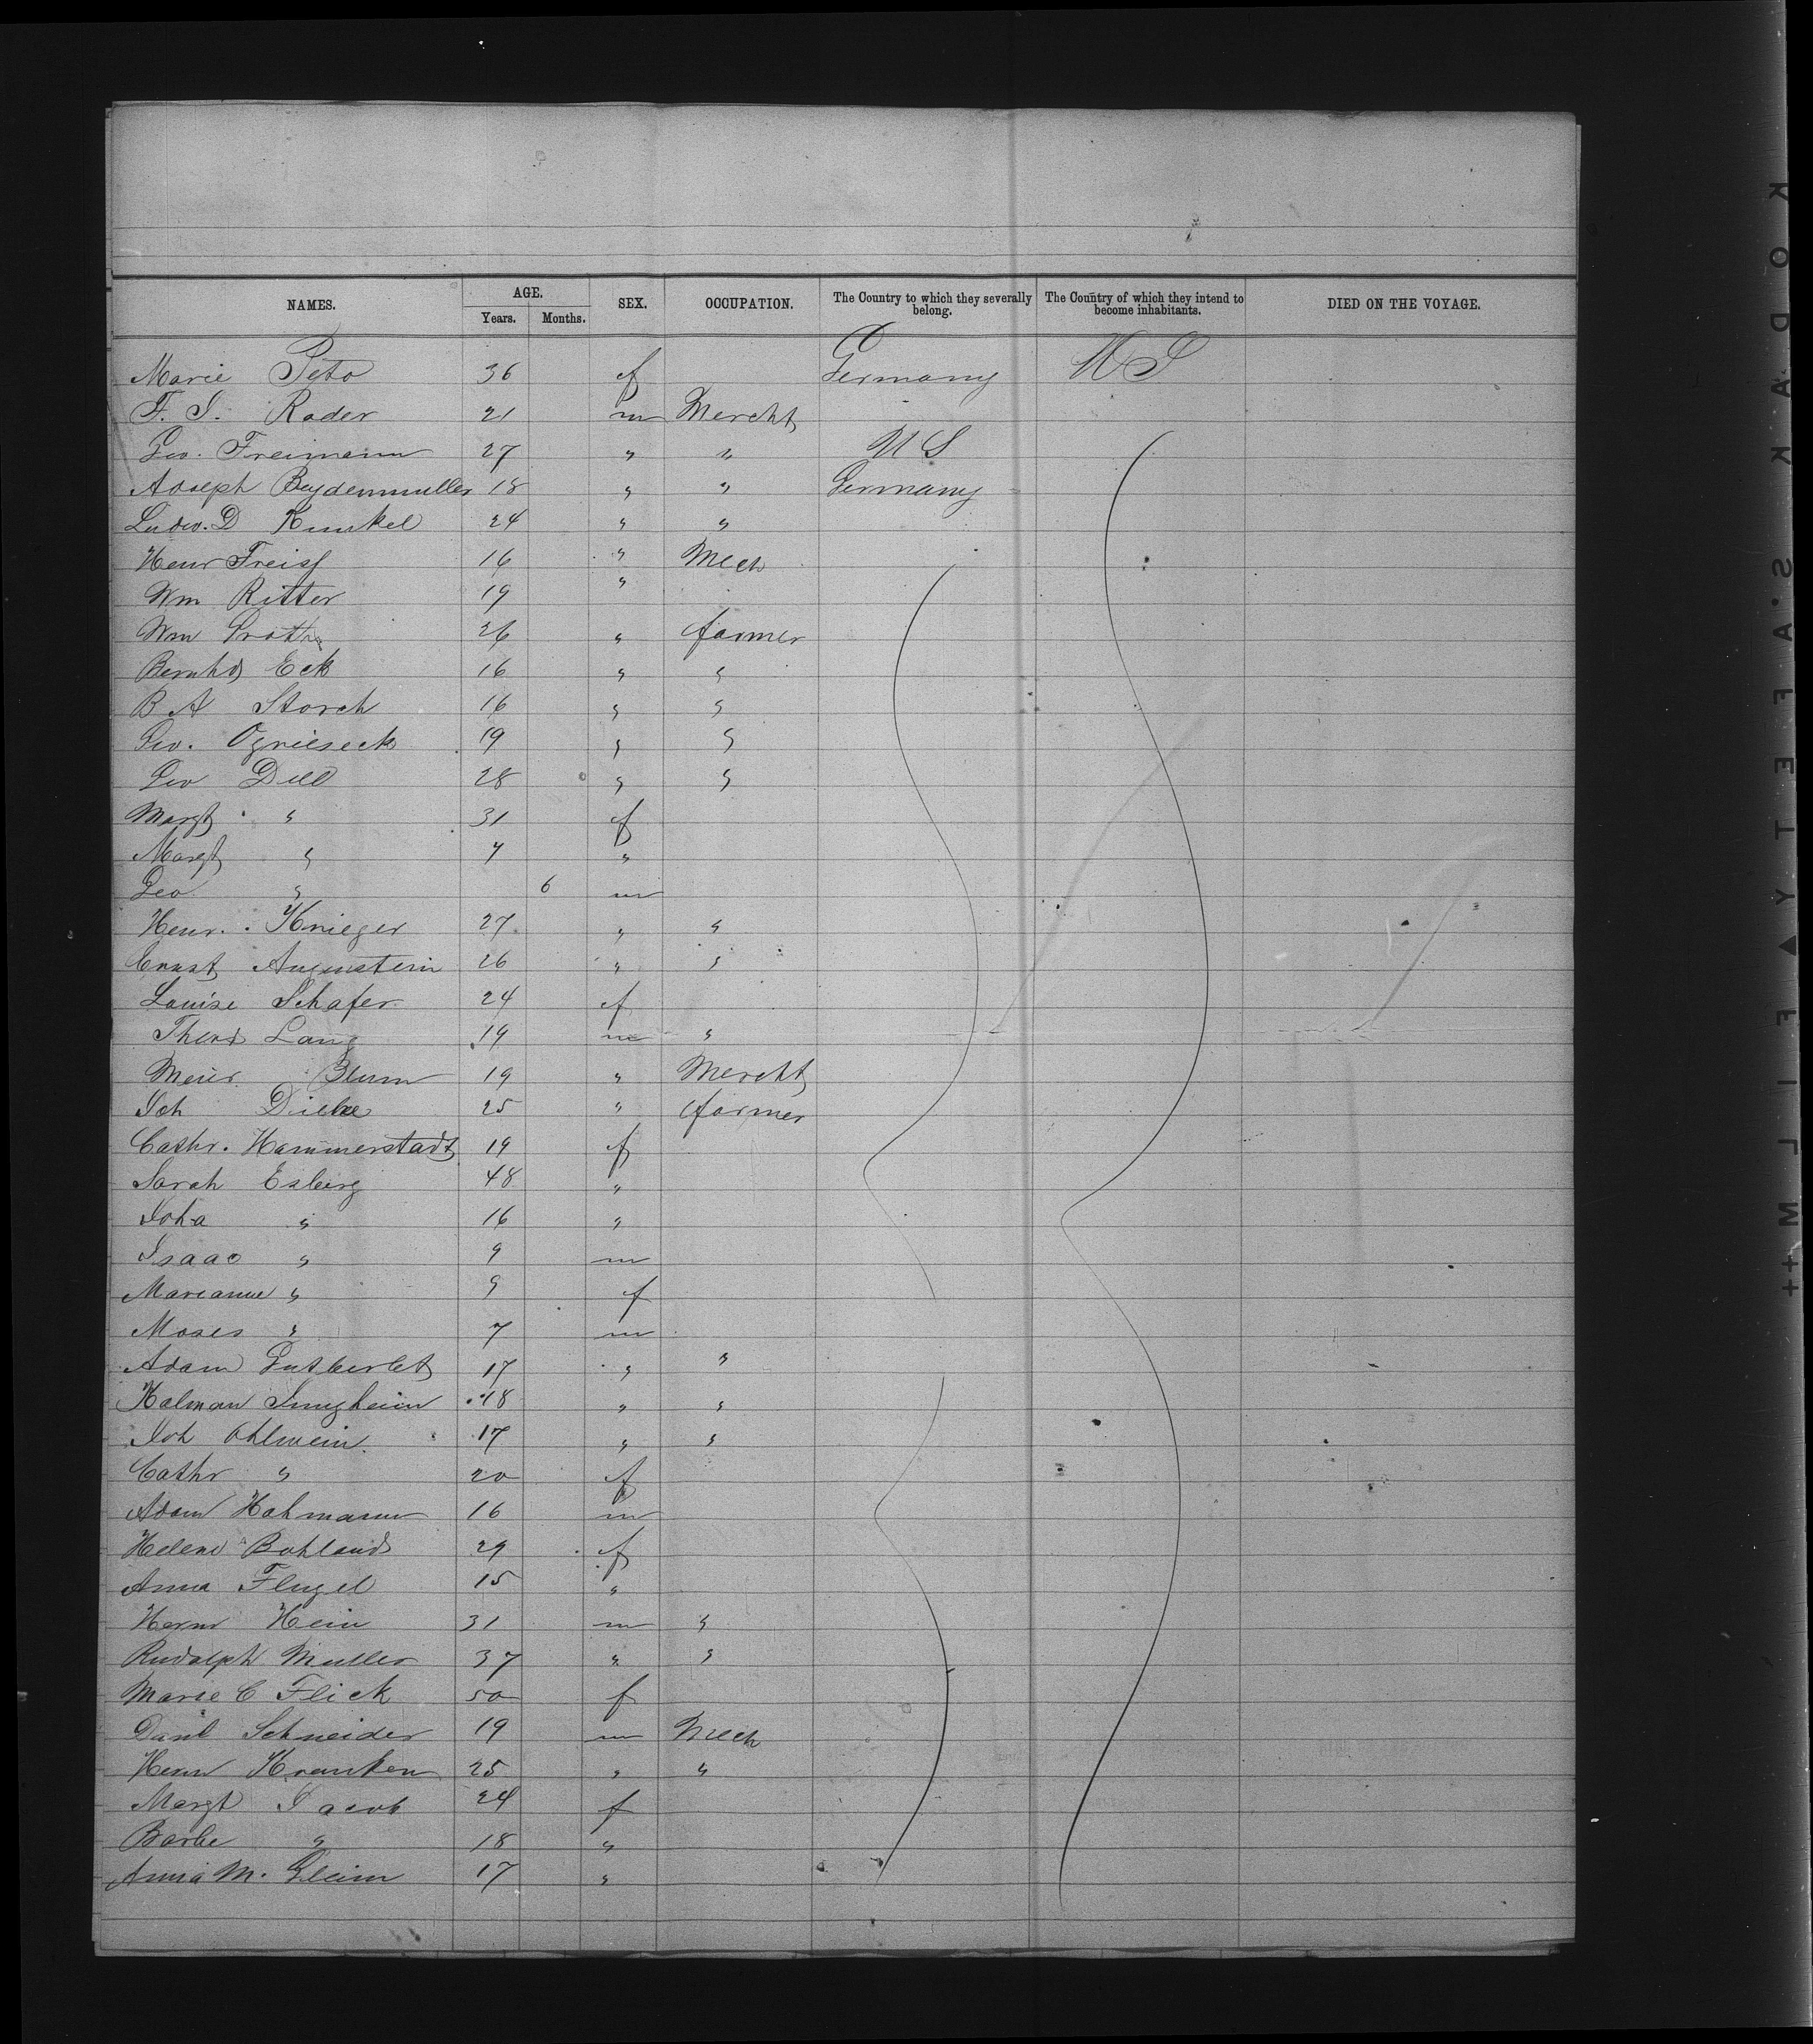 NAMES. AGE. SEX. OCCUPATION. The Country to which they severally belong. The Country of which they intend to become inhabitants. DIED ON THE VOYAGE.
Years. Months.
Marie Peto 36 f Germany U S
F. S. Rader 21 m Mercht
Geo. Freimann 27 " " U S
Adolph Beydenmuller 18 " " Germany
Ludw. D Kunkel 24 " "
Henr Freis 16 " Mech
Wm Ritter 19 "
Wm Groth 26 " farmer
Bernhd Eck 16 " "
B A Storch 16 " "
Geo. Ogrieseck 19 " "
Geo Dill 28 " "
Margt " 31 f
Margt " 7 "
Geo " 6 m
Henr. Krieger 27 " "
Ernst Augenstein 26 " "
Louise Schafer 24 f
Theod Lang 19 m "
Meier Blum 19 " Mercht
Joh Dicke 25 " farmer
Cathr. Hammerstadt 19 f
Sarah Esberg 48 "
Joha " 16 "
Isaac " 9 m
Marianne " 9 f
Moses " 7 m
Adam Gutberlet 17 " "
Kalman Jungheim 18 " "
Joh Ohlwein 17 " "
Cathr " 20 f
Adam Hohmann 16 m
Helene Bohland 29 f
Anna Flugel 15 "
Herm Hein 31 m "
Rudolph Muller 37 " "
Marie C Flick 50 f
Danl Schneider 19 m Mech
Herm Kranken 25 " "
Margt Jacob 24 f
Barbe " 18 "
Anna M. Gleim 17 "
KODAK·SAFETY▲FILM++